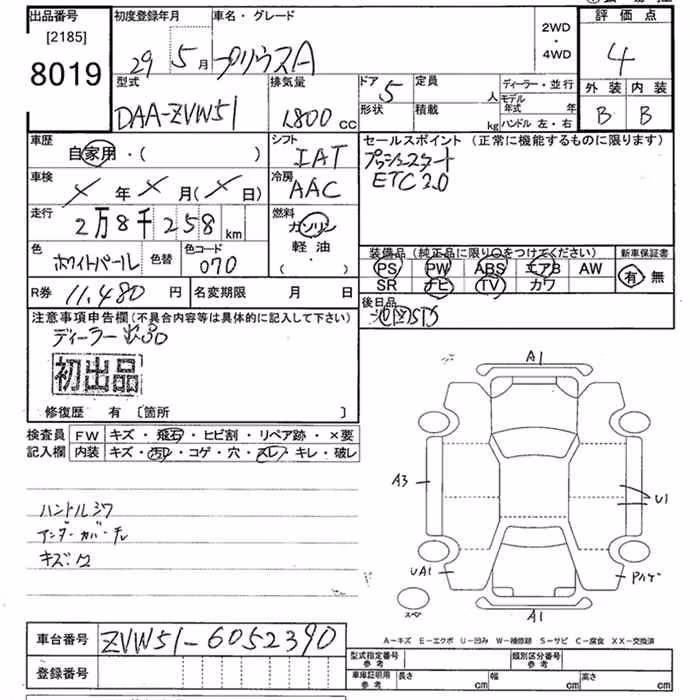 出品番号 初度登録年月 車名・グレード 評価点
[2185]
8019
29 5月 プリウスA 2WD・4WD 4
型式 排気量 ドア 5 定員 人 ディーラー・並行 外装 内装
DAA-ZVW51 1800 cc 形状 積載 kg モデル年式 年 B B
ハンドル 左・右
車歴 シフト セールスポイント（正常に機能するものに限ります）
自家用・( ) IAT プッシュスタート
車検 冷房 ETC2.0
× 年 × 月(× 日) AAC
走行 燃料
2万8千258 km ガソリン
色 色替 色コード 軽油
ホワイトパール 070 ( ・ )
装備品（純正品に限り○をつけてください） 新車保証書
PS PW ABS エアB AW 有 無
SR ナビ TV カワ
R券 11,480 円 名変期限 月 日
後日品
注意事項申告欄（不具合内容等は具体的に記入して下さい）
ディーラー出品
初出品
修復歴 有 〔箇所 〕
検査員 FW キズ・飛石・ヒビ割・リペア跡・×要
記入欄 内装 キズ・汚レ・コゲ・穴・スレ・キレ・破レ
A1
A3
U1
ハンドルスレ
アンダーカバー
キズ
UA1
スペア
A1
A-キズ E-エクボ U-凹み W-補修跡 S-サビ C-腐食 XX-交換済
車台番号 ZVW51-6052390
登録番号
型式指定番号 参考 類別区分番号 参考
車庫証明用 参考 長さ cm 幅 cm 高さ cm